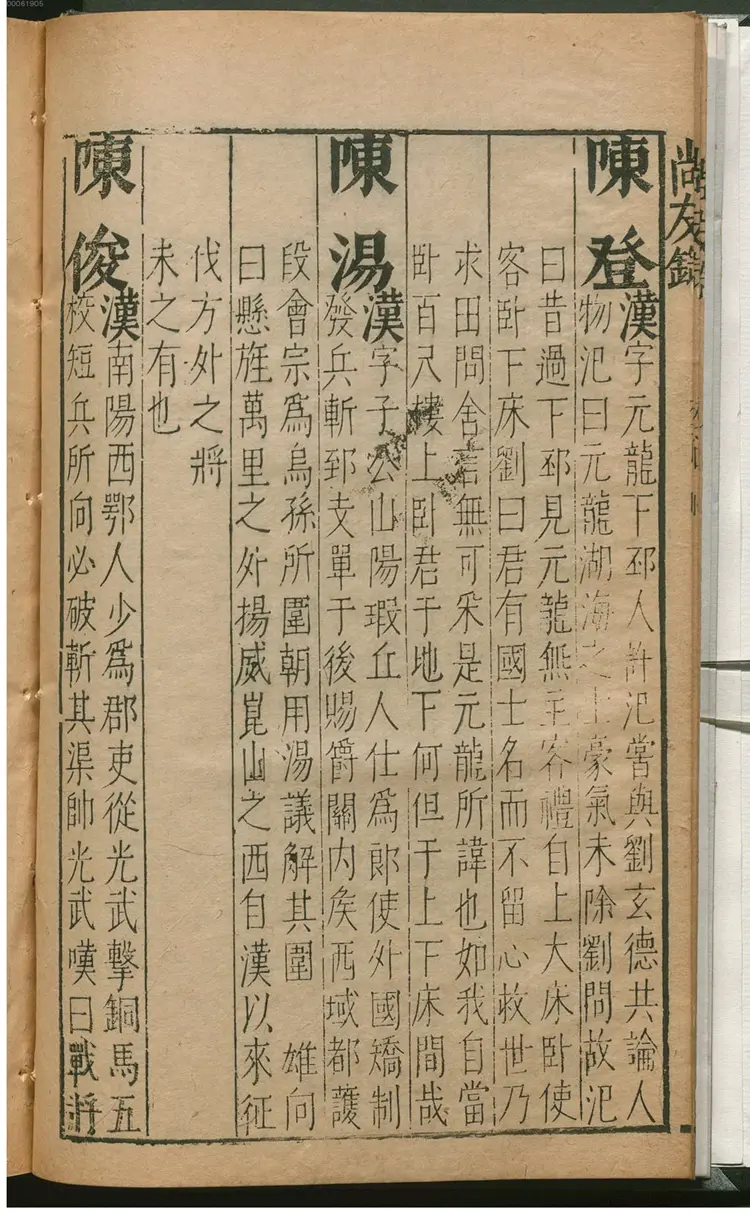 00061905
尚友錄
陳登
漢字元龍下邳人許汜嘗與劉玄德共論人
物汜曰元龍湖海之士豪氣未除劉問故汜
曰昔過下邳見元龍無主客禮自上大床卧使
客卧下床劉曰君有國士名而不留心救世乃
求田問舍言無可采是元龍所諱也如我自當
卧百尺樓上卧君于地下何但于上下床間哉
陳湯
漢字子公山陽瑕丘人仕為郎使外國矯制
發兵斬郅支單于後賜爵關內矦西域都護
段會宗為烏孫所圍朝用湯議解其圍 雄向
曰懸旌萬里之外揚威崑山之西自漢以來征
伐方外之將
未之有也
陳俊
漢南陽西鄂人少為郡吏從光武擊銅馬五
校短兵所向必破斬其渠帥光武嘆曰戰將